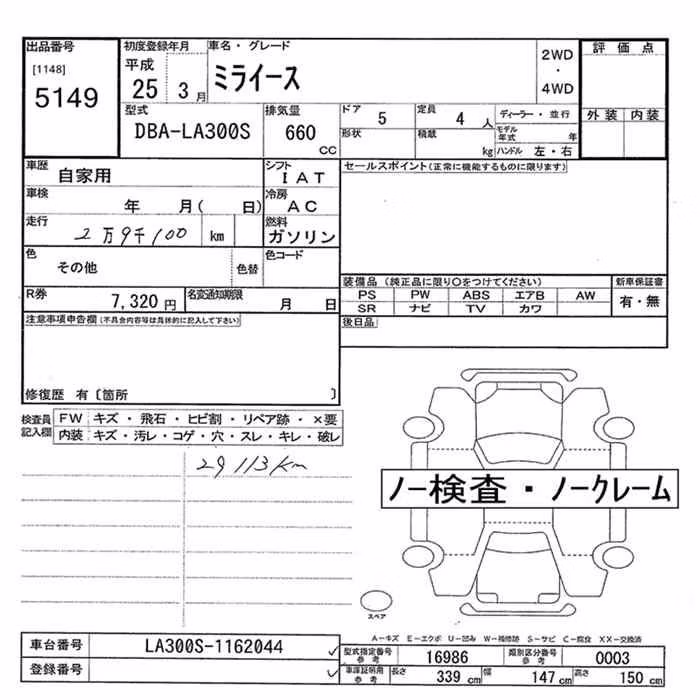 出品番号
[1148]
5149
初度登録年月
平成
25 3月
車名・グレード
ミライース
2WD
・
4WD
評価点
外装 内装
型式
DBA-LA300S
排気量
660
CC
ドア
5
定員
4 人
ディーラー・並行
形状
積載
kg
モデル年式 年
ハンドル 左・右
車歴
自家用
シフト
IAT
セールスポイント(正常に機能するものに限ります)
車検
年 月( 日)
冷房
AC
走行
2万9千100 km
燃料
ガソリン
色
その他
色替
色コード
R券
7,320 円
名変通知期限
月 日
装備品 (純正品に限り○をつけてください)
新車保証書
PS PW ABS エアB AW
SR ナビ TV カワ
有・無
後日品
注意事項申告欄(不具合内容等は具体的に記入して下さい)
修復歴 有〔箇所 〕
検査員
記入欄
FW キズ・飛石・ヒビ割・リペア跡・×要
内装 キズ・汚レ・コゲ・穴・スレ・キレ・破レ
29113km
ノー検査・ノークレーム
スペア
A-キズ E-エクボ U-凹み W-補修跡 S-サビ C-腐食 XX-交換済
車台番号
LA300S-1162044
登録番号
型式指定番号
参考
16986
類別区分番号
参考
0003
車庫証明用
参考
長さ 339 cm 幅 147 cm 高さ 150 cm